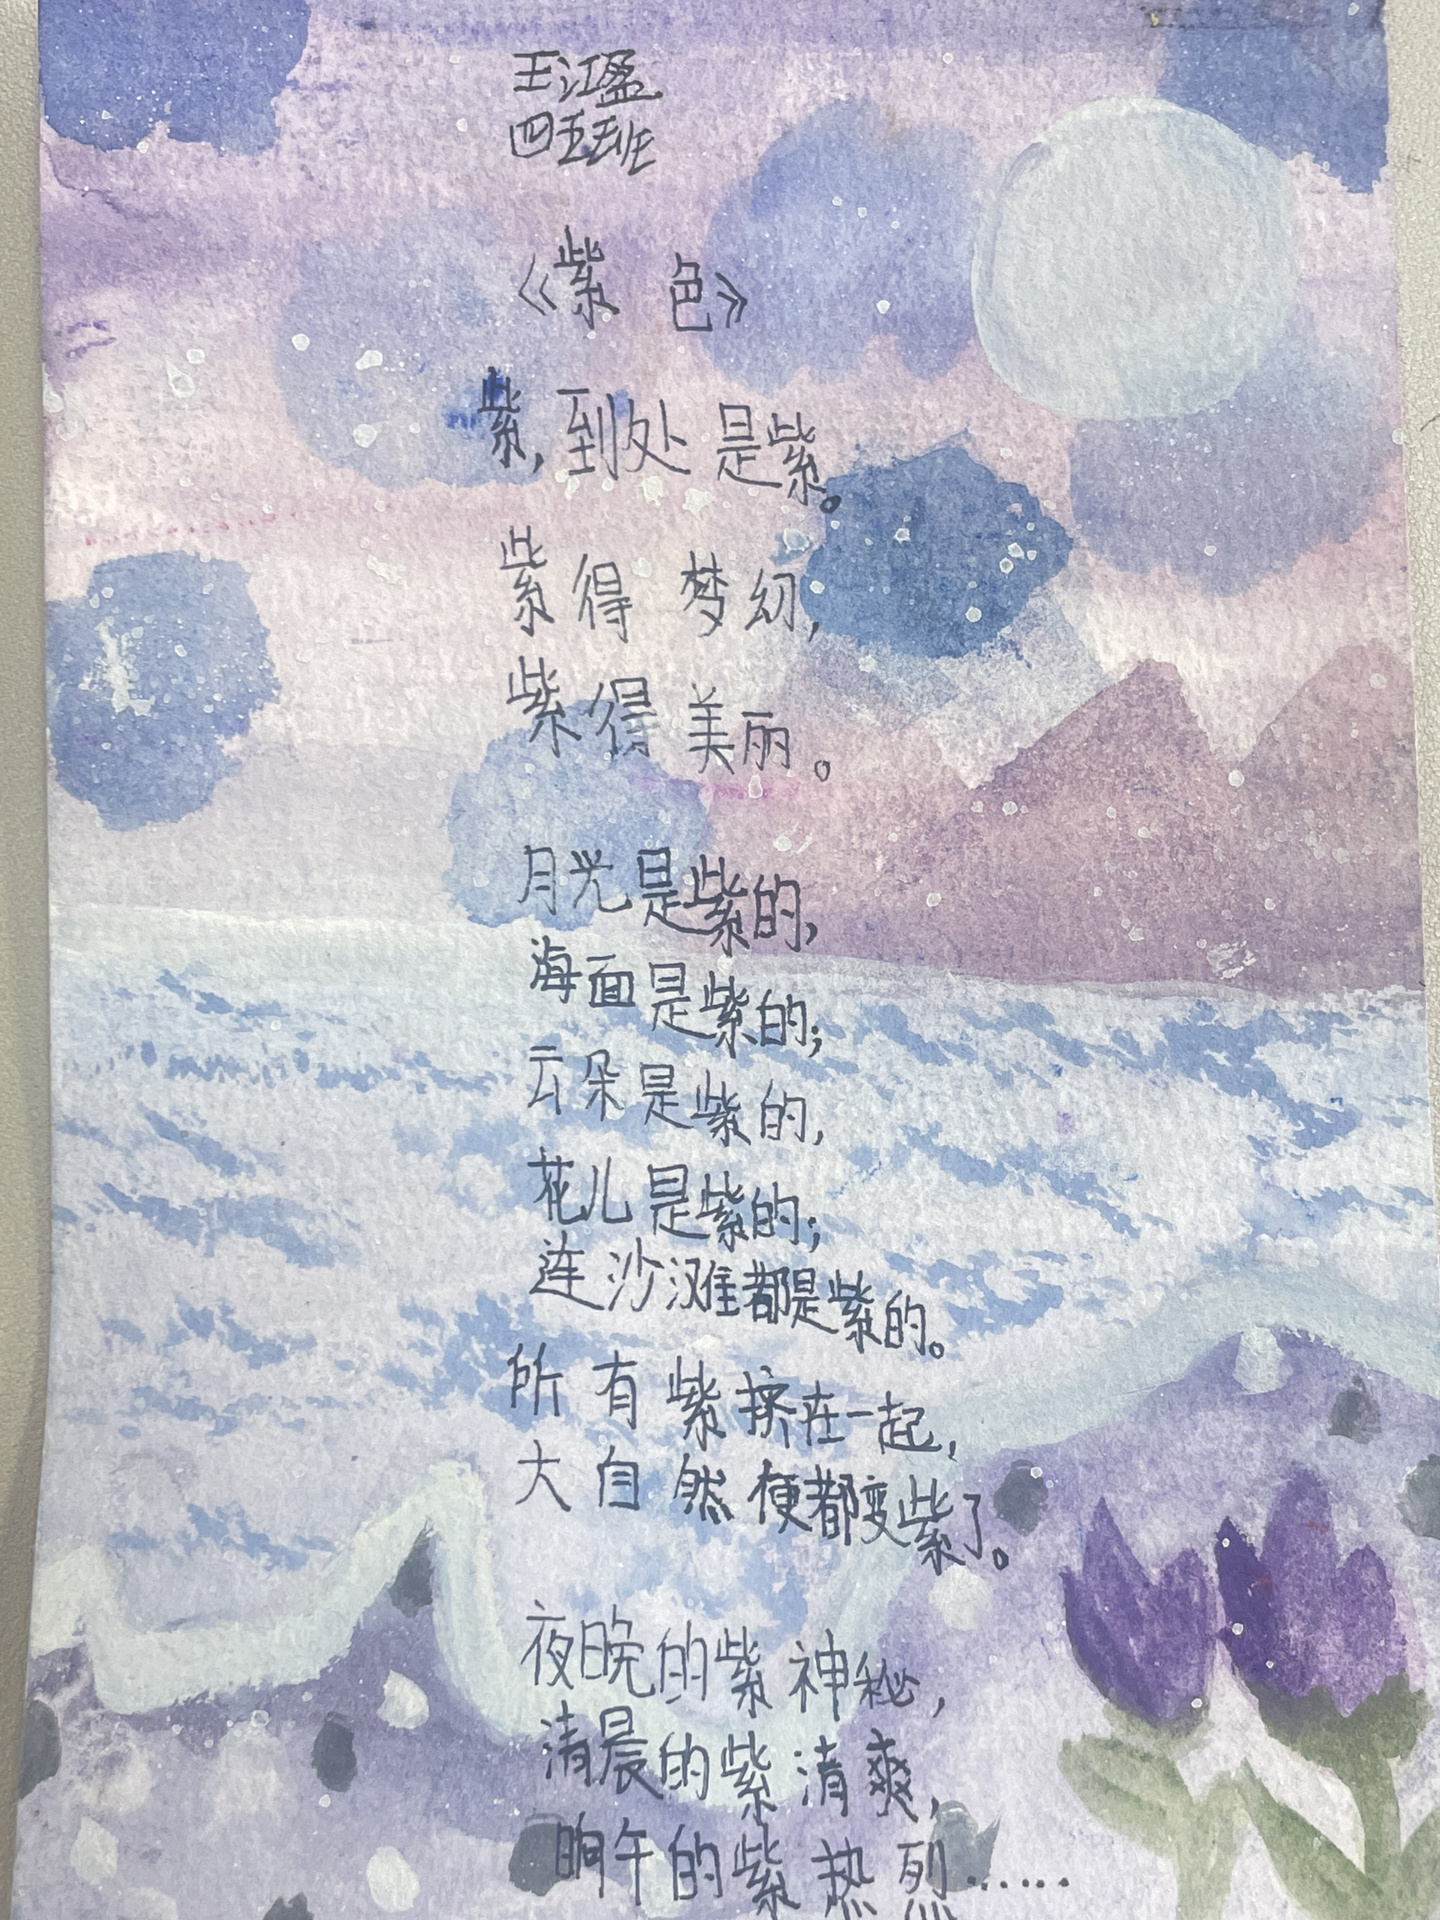 王江盈
四五班
《紫 色》
紫,到处是紫。
紫得 梦幻,
紫得 美丽。
月光是紫的,
海面是紫的;
云朵是紫的,
花儿是紫的;
连沙滩都是紫的。
所有紫挤在一起,
大自然便都变紫了。
夜晚的紫神秘,
清晨的紫清爽,
晌午的紫热烈……